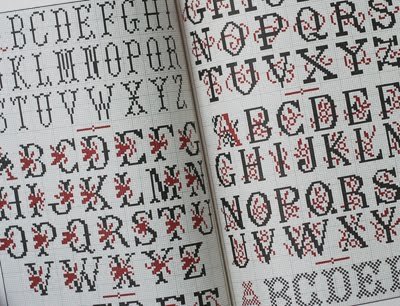 BCDEFGH
KLMNOPQR
STUVWXYZ
ABCDEFG
HIJKLMN
OPQRST
VWXYZ
NOPQRS
TUVXYZ
ABCDEF
GHIJKLN
OPQRS
UVWXY
ABCDE